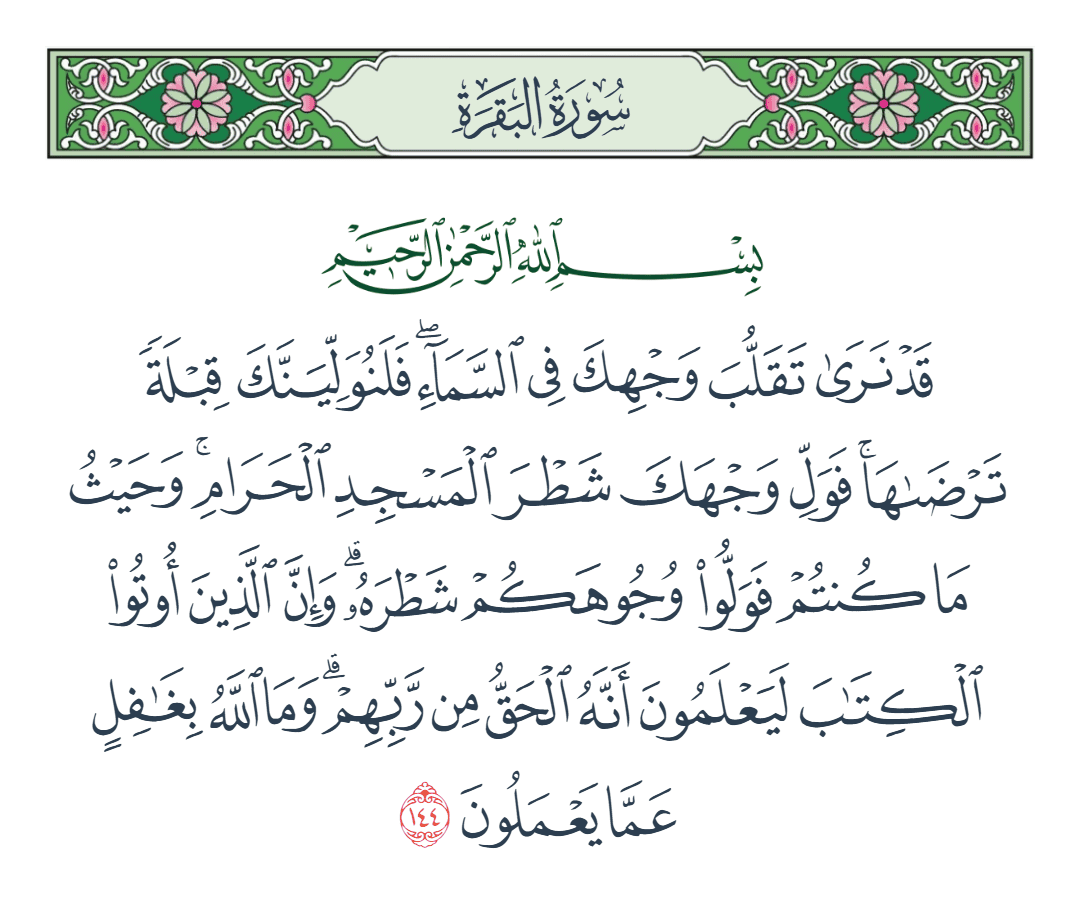 سُورَةُ البَقَرَةِ
بِسْمِ ٱللَّهِ ٱلرَّحْمَٰنِ ٱلرَّحِيمِ
قَدْ نَرَىٰ تَقَلُّبَ وَجْهِكَ فِى ٱلسَّمَآءِ ۖ فَلَنُوَلِّيَنَّكَ قِبْلَةً
تَرْضَىٰهَا ۚ فَوَلِّ وَجْهَكَ شَطْرَ ٱلْمَسْجِدِ ٱلْحَرَامِ ۚ وَحَيْثُ
مَا كُنتُمْ فَوَلُّوا۟ وُجُوهَكُمْ شَطْرَهُۥ ۗ وَإِنَّ ٱلَّذِينَ أُوتُوا۟
ٱلْكِتَٰبَ لَيَعْلَمُونَ أَنَّهُ ٱلْحَقُّ مِن رَّبِّهِمْ ۗ وَمَا ٱللَّهُ بِغَٰفِلٍ
عَمَّا يَعْمَلُونَ ١٤٤